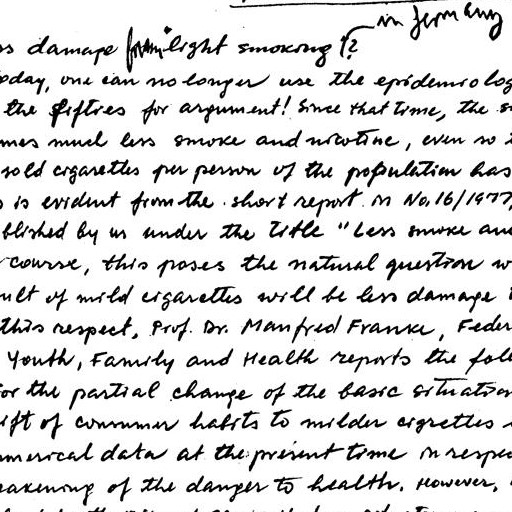 in Germany
ss damage from "light smoking"?
oday, one can no longer use the epidemiolog
the fifties for argument! Since that time, the s
mes much less smoke and nicotine, even so t
sold cigarettes per person of the population has
s is evident from the short report in No. 16/1977,
blished by us under the title "Less smoke and
course, this poses the natural question w
ult of mild cigarettes will be less damage t
this respect, Prof. Dr. Manfred Franke, Feder
Youth, Family and Health reports the foll
for the partial change of the basic situation
ift of consumer habits to milder cigrettes
umerical data at the present time in respec
eakening of the danger to health. However,